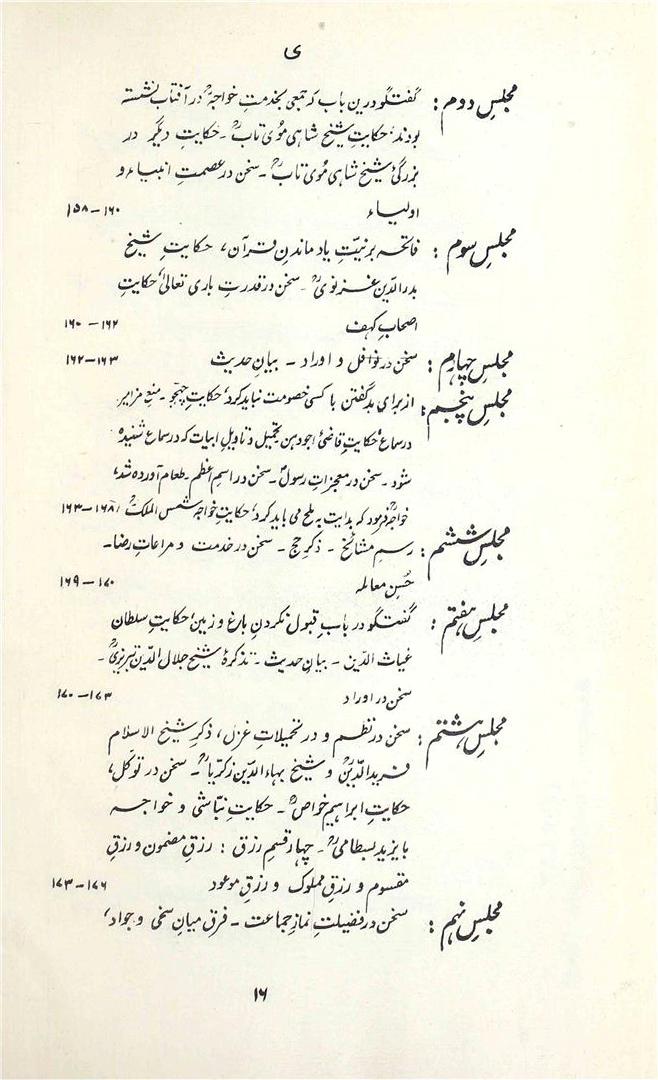 ی
مجلسِ دوم : گفتگو درین باب که جمعی بخدمتِ خواجهؒ در آفتاب نشسته
بودند، حکایتِ شیخ شاهی مُوی تابؒ ۔ حکایتِ دیگر در
بزرگیِٔ شیخ شاهی مُوی تابؒ ۔ سخن در عصمتِ انبیاء و
اولیاء ۱۵۸ – ۱۶۰
مجلسِ سوم : فاتحہ بر نیّتِ یاد ماندنِ قرآن، حکایتِ شیخ
بدرالدّین غزنویؒ ۔ سخن در قدرتِ باری تعالیٰ، حکایتِ
اصحابِ کهف ۱۶۰ – ۱۶۲
مجلسِ چهارم : سخن در نوافل و اوراد ۔ بیانِ حدیث ۱۶۲ – ۱۶۳
مجلسِ پنجم : از برای بد گفتن با کسی خصومت نباید کرد، حکایتِ چَهجّو ۔ منعِ مزامیر
در سماع، حکایتِ قاضیٔ اجودهن تجمیل و تاویلِ ابیات که در سماع شنیده
شود ۔ سخن در معجزاتِ رسولؐ ۔ سخن در اسمِ اعظم ۔ طعام آورده شد،
خواجهؒ فرمود که بدایت به ملح می باید کرد، حکایتِ خواجه شمس الملکؒ ۱۶۳ – ۱۶۸
مجلسِ ششم : رسمِ مشائخ ۔ ذکرِ حج ۔ سخن در خدمت و مراعاتِ رضا ۔
حُسنِ معامله ۱۶۹ – ۱۷۰
مجلسِ هفتم : گفتگو در بابِ قبول نکردنِ باغ و زمین، حکایتِ سلطان
غیاث الدّین ۔ بیانِ حدیث ۔ تذکرهٔ شیخ جلال الدّین تبریزیؒ ۔
سخن در اوراد ۱۷۰ – ۱۷۳
مجلسِ هشتم : سخن در نظم و در تخیلاتِ غزل، ذکرِ شیخ الاسلام
فریدالدّینؒ و شیخ بهاء الدّین زکریّاؒ ۔ سخن در توکّل،
حکایتِ ابراهیم خواصؒ ۔ حکایتِ نبّاشی و خواجه
بایزید بسطامیؒ ۔ چهار قسمِ رزق : رزقِ مضمون و رزقِ
مقسوم و رزقِ مملوک و رزقِ موعود ۱۷۳ – ۱۷۶
مجلسِ نهم : سخن در فضیلتِ نمازِ جماعت ۔ فرق میانِ سخی و جواد،
۱۶